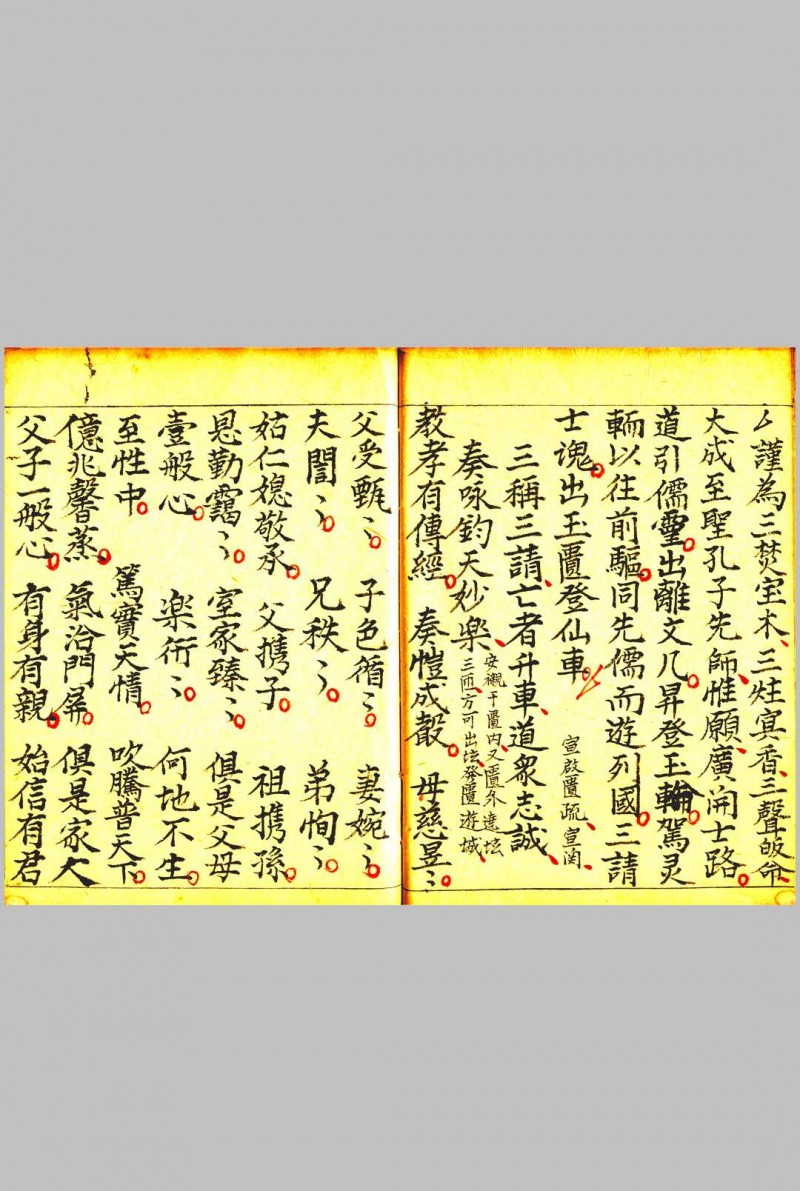 厶謹為三焚宝木三炷冥香三聲皈命
大成至聖孔子先師惟願廣開士路
道引儒靈出離文几昇登玉輪駕灵
輀以往前驅同先儒而遊列國三請
士魂出玉匱登仙車 宣啟匱疏宣関
三稱三請亡者升車道眾志誠
奏咏鈞天妙樂
安櫬于匱内又匱外遶坛
三匝方可出坛發匱遊城
教孝有傳經 奏愷成嗀 母慈昱〻
父受甄〻 子色循〻 妻婉〻
夫誾〻 兄秩〻 弟恂〻
姑仁媳敬承 父携子 祖携孫
恳勤靄〻 室家臻〻 俱是父母
壹般心 楽衎〻 何地不生
至性中 篤實天情 吹騰普天下
億兆馨蒸 氣洽門屏 俱是家大
父子一般心 有身有親 始信有君